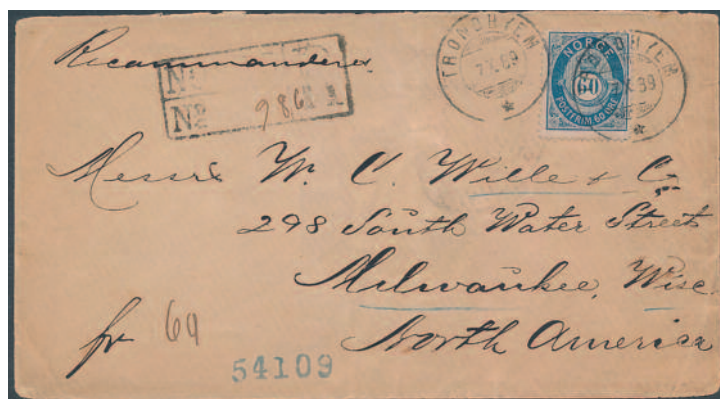 Recommanderes
No
No 986
TRONDHJEM
7 X 89
NORGE
60
POSTFRIM. 60 ØRE
TRONDHJEM
7 X 89
Messrs W. C. Wille & Co
298 South Water Street
Milwaukee, Wisc.
North America
fr 64
54109